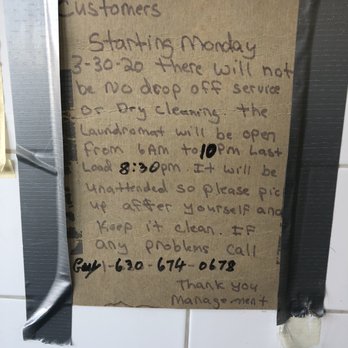 Customers
Starting Monday
3-30-20 there will not
be no drop off service
or Dry cleaning. the
Laundromat will be open
from 6AM to 10pm Last
Load 8:30pm. It will be
unattended so please pic
up after yourself and
keep it clean. If
any problems call
Guy 1-630-674-0678
Thank you
Management